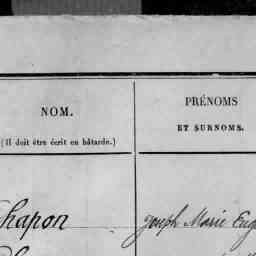 NOM.
(Il doit être écrit en bâtarde.)
PRÉNOMS
ET SURNOMS.
Chapon
Joseph Marie Eug